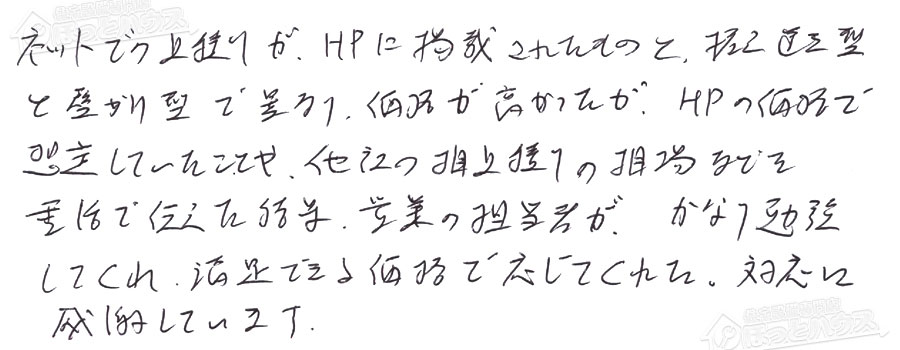 ネットでの見積りが、HPに掲載されたものと、据置型
と壁掛け型で異なり、価格が高かったが、HPの価格で
想定していたことや、他社の相見積りの相場などを
電話で伝えた結果、営業の担当者が、かなり勉強
してくれ、満足できる価格で応じてくれた。対応に
感謝しています。
ほっとハウス
ほっとハウス